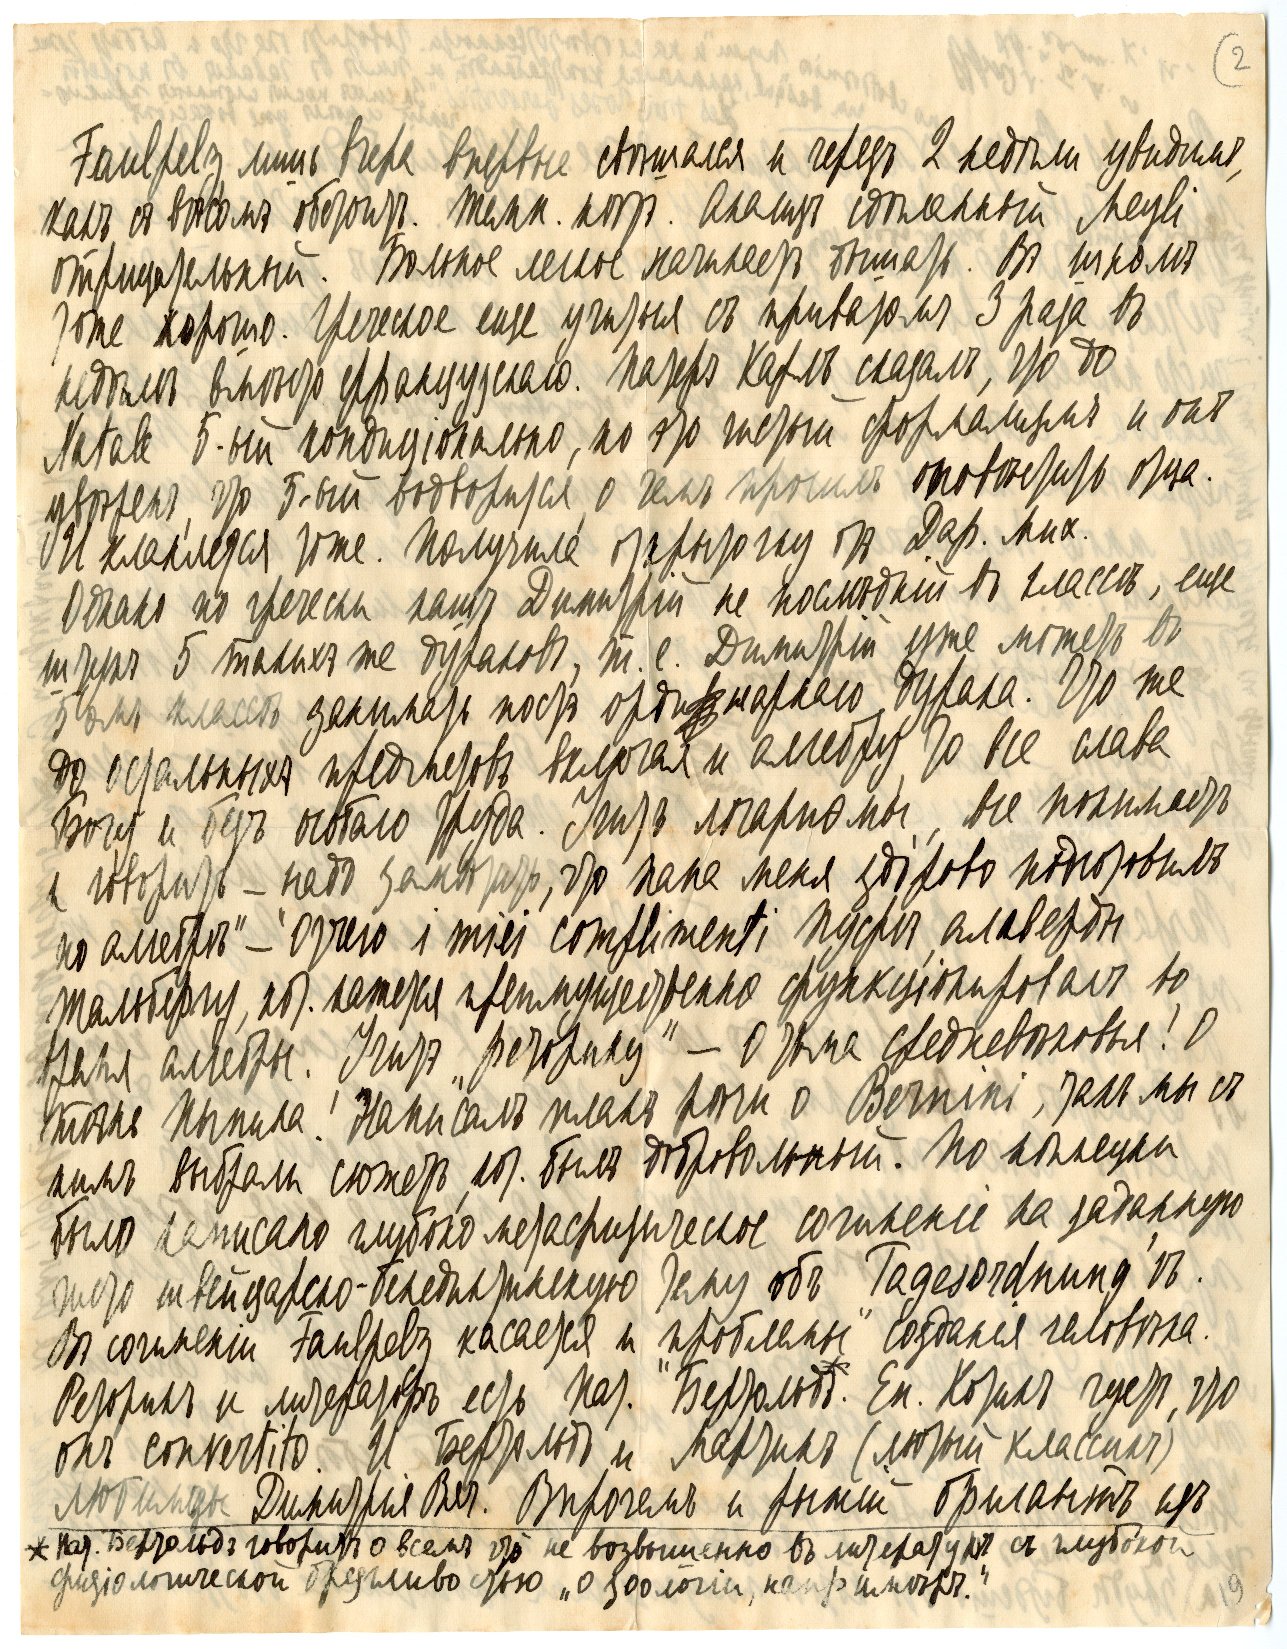 (2
Faulpelz лишь вчера впервые свѣшался и черезъ 2 недѣли увидимъ,
какъ съ вѣсомъ обстоитъ. Темп. норм. Анализъ сдѣланный Meyli
отрицательный. Больное легкое начинаетъ дышать. Въ школѣ
тоже хорошо. Греческое еще учитъ съ приватомъ 3 раза въ
недѣлю вмѣсто французскаго. Патеръ Карлъ сказалъ, что до
Natale 5-ый кондиціонально, но это чистый формализмъ и онъ
увѣренъ, что 5-ый водворится, о чемъ просилъ оповѣстить отца.
И кланяется тоже. Получила открытку отъ Дар. Мих.
Однако по гречески нашъ Димитрій не послѣдній въ классѣ, еще
штукъ 5 такихъ же дураковъ, т. е. Димитрій уже можетъ въ
5омъ классѣ занимать постъ ординарнаго дурака. Что же
до остальныхъ предметовъ включая и алгебру, то все слава
Богу и безъ особаго труда. Учитъ логариѳмы, все понимаетъ
и говоритъ – надо замѣтить, что папа меня здорово подготовилъ
по алгебрѣ" – Отчего i miei complimenti пусть алаверды
Тальбергу, кот. кажется преимущественно функціонировалъ во
время алгебры. Учитъ „реторику" – О тьма средневѣковья! О
тѣнь Нымика! Написалъ планъ рѣчи о Bernini, такъ мы съ
нимъ выбрали сюжетъ, кот. былъ добровольный. По нѣмецки
было написано глубоко метафизическое сочиненіе на заданную
чисто швейцарско-бенедиктинскую тему объ Tagesordnung'ѣ.
Въ сочиненіи Faulpelz касается и „проблемы" созданія человѣка.
Реторикъ и литераторъ есть Пат. "Бертольдъ*. Ек. Котикъ чуетъ, что
онъ convertito. И Бертольдъ и Мартинъ (лютый классикъ)
любимцы Димитрія Вяч. Впрочемъ и рыжій
* Пат. Бертольдъ говоритъ о всемъ что не возвышенно въ литературѣ съ глубокой
физіологической брезгливостью „о зоологіи, напримѣръ."
9